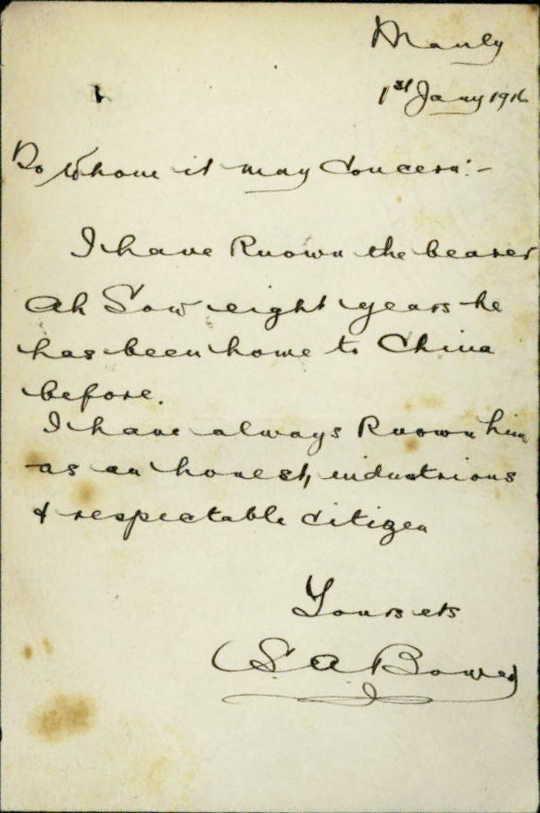 Manly
1st Jany 191
To Whom it may Concern:-
I have Known the bearer
Ah Sow eight years he
has been home to China
before.
I have always Known him
as an honest, industrious
& respectable citizen
Yours etc
S. A. Bowes